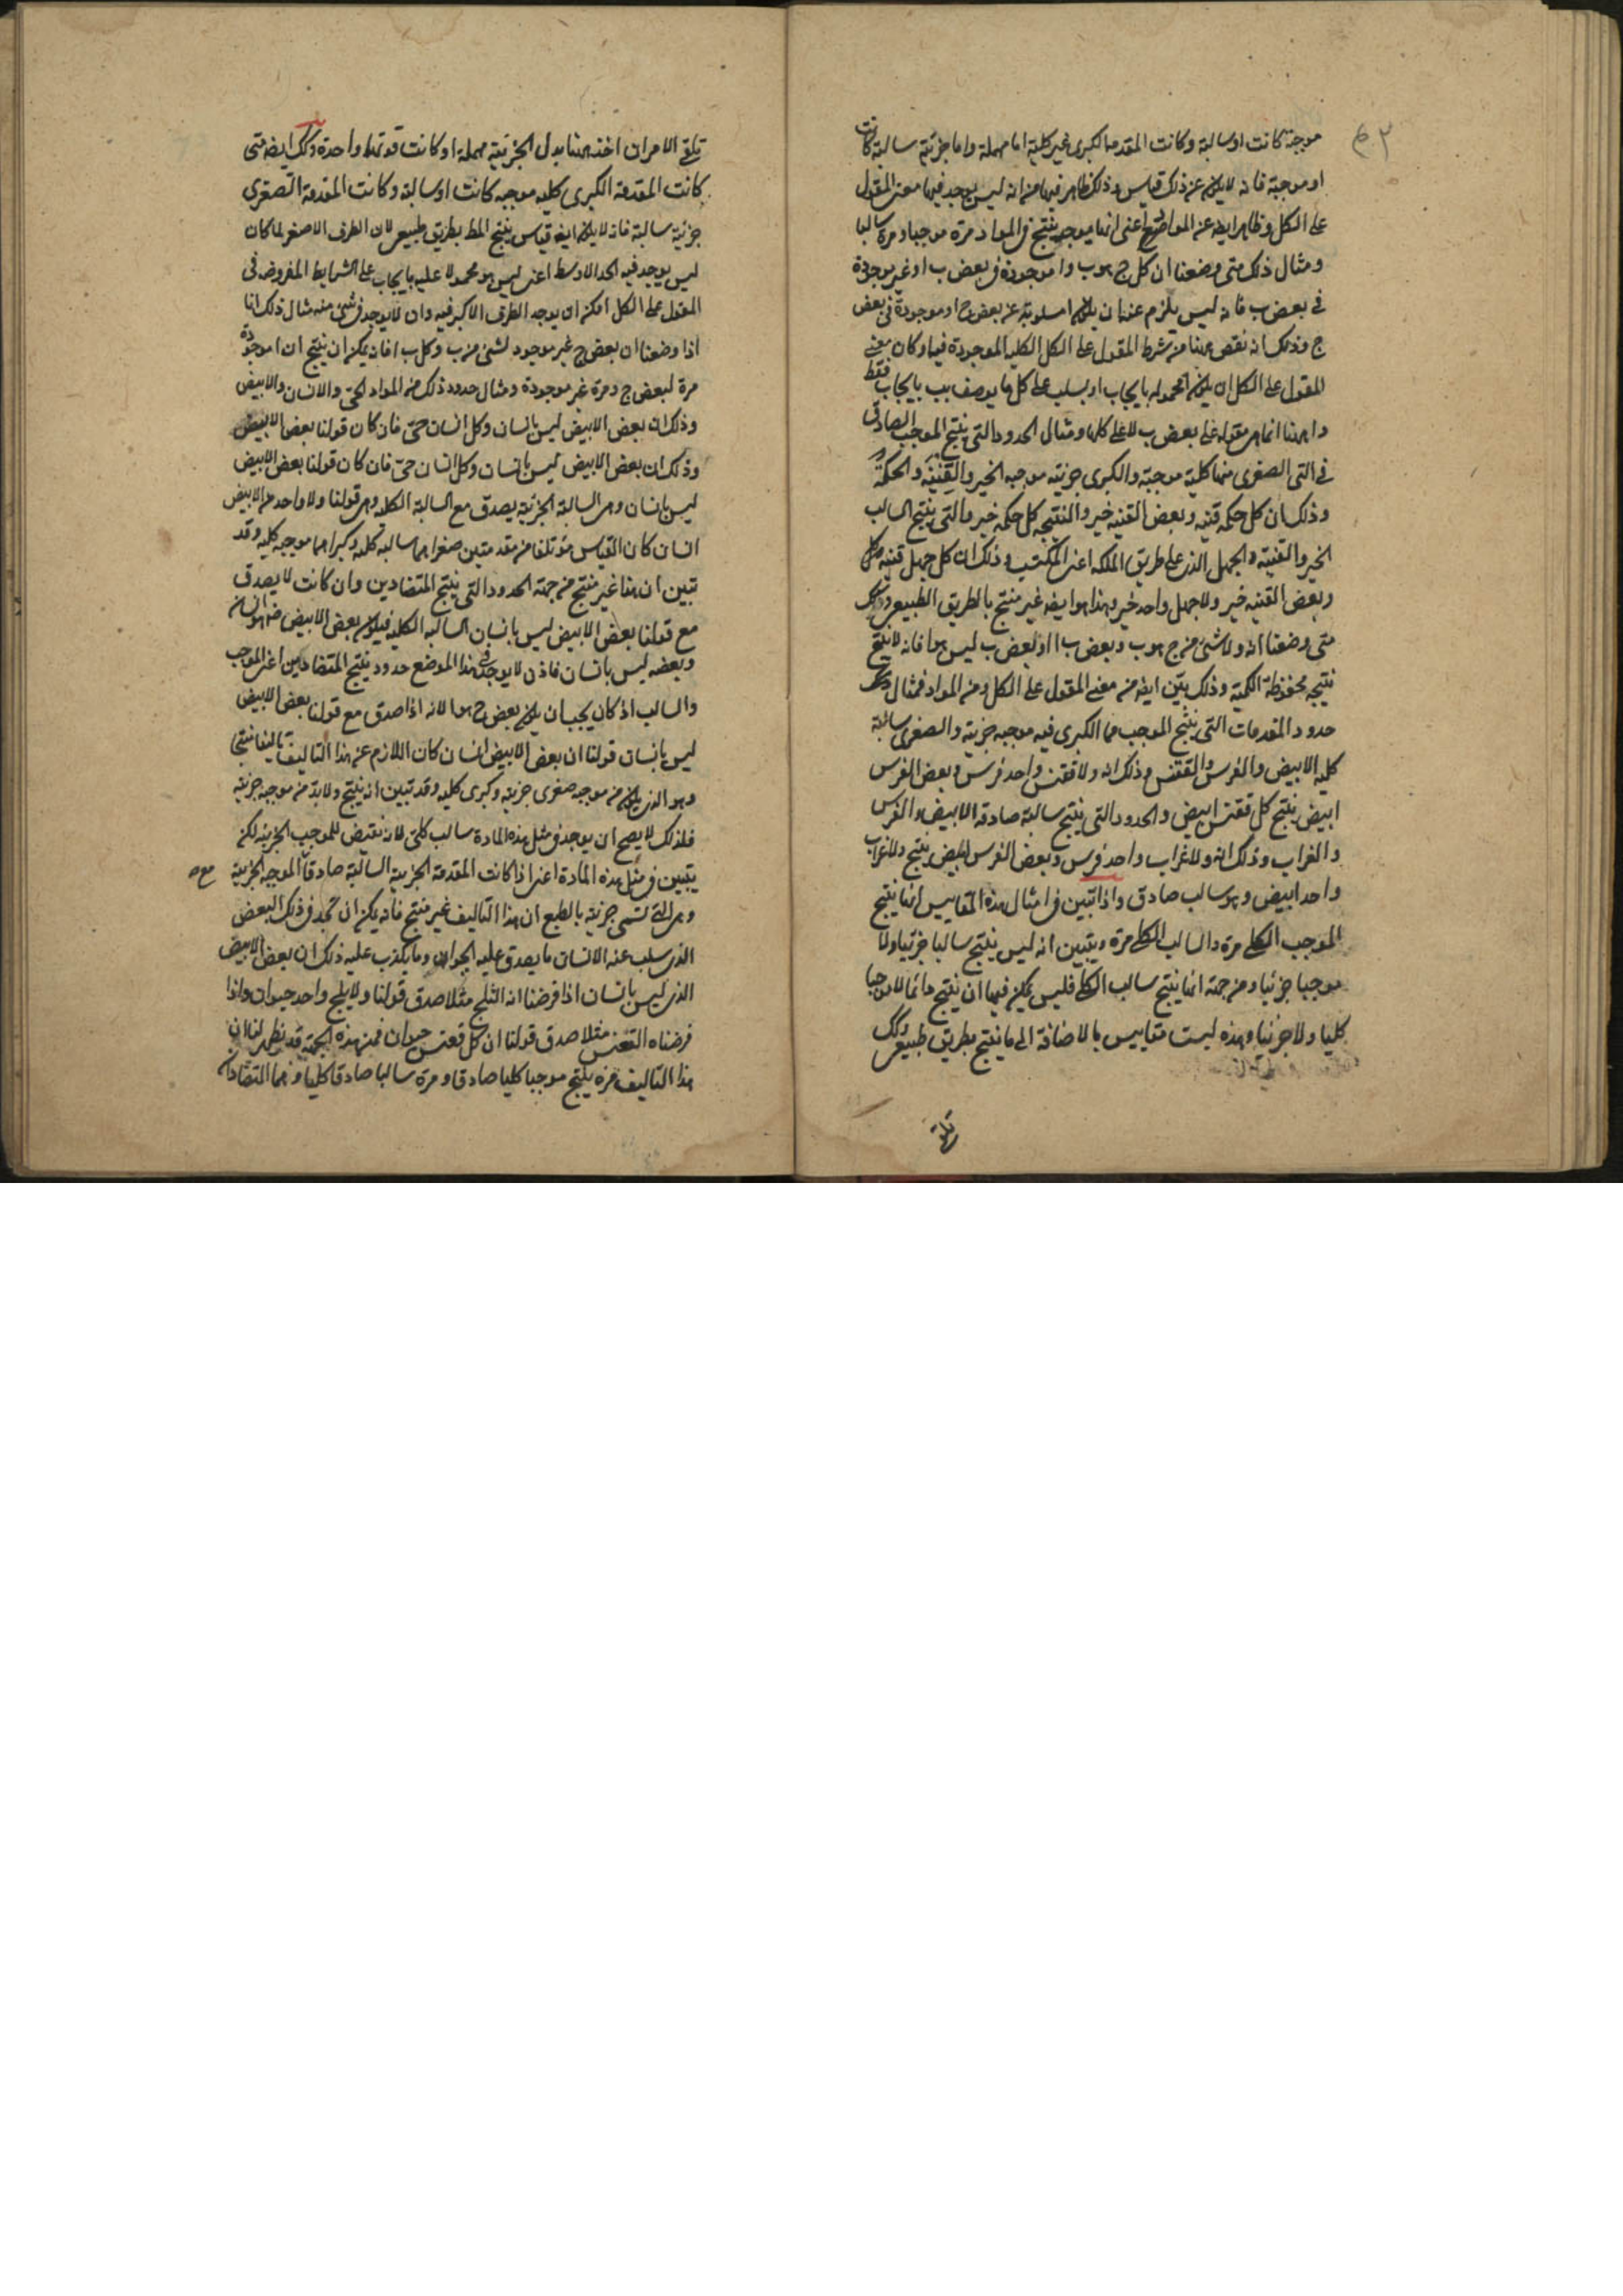 موجبة كانت او سالبة وكانت المقدمة الكبرى غير كلية اما مهملة واما جزئية سالبة كانت
او موجبة فانه لا يكون عن ذلك قياس وذلك ظاهر فيها من انه ليس يوجد فيها معنى المقول
على الكل وظاهر ايضا عند المواضع اعنى انها توجد تنتج فى المواد مرة موجبا ومرة سالبا
ومثال ذلك متى وضعنا ان كل ج هو ب وا موجودة فى بعض ب او غير موجودة
فى بعض ب فانه ليس يلزم عنه ان يكون ا مسلوبة عن بعض ج او موجودة فى بعض
ج وذلك انه نقص هنا من شرط المقول على الكل الكلية الموجودة فيه اذ كان معنى
المقول على الكل ان يكون المحمول بايجاب او بسلب على كل ما يوصف بب بايجاب فقط
وا ههنا انما هى مقولة على بعض ب لا على كلها ومثال الحدود التى ينتج الموجب الصادق
فى التى الصغرى منها كلية موجبة والكبرى جزئية موجبة الخير والقنية والحكمة
وذلك ان كل حكمة قنية وبعض القنية خير والنتيجة كل حكمة خير والتى ينتج السالب
الخير والقنية والجهل الذى على طريق الملكة اعنى المكتسب وذلك ان كل جهل قنية
وبعض القنية خير ولا جهل واحد خير وهذا هو ايضا غير منتج بالطريق الطبيعى وذلك
متى وضعنا انه ولا شىء من ج هو ب وبعض ب ا او بعض ب ليس هو ا فانه لا ينتج
نتيجة محفوظة الكمية وذلك بيّن ايضا من معنى المقول على الكل ومن المواد فمثال ذلك
حدود المقدمات التى ينتج الموجب مما الكبرى فيه موجبة جزئية والصغرى سالبة
كلية الابيض والفرس والققنس وذلك انه ولا ققنس واحد فرس وبعض الفرس
ابيض ينتج كل ققنس ابيض والحدود التى ينتج سالبة صادقة الابيض والفرس
والغراب وذلك انه ولا غراب واحد فرس وبعض الفرس ابيض ينتج ولا غراب
واحد ابيض وهو سالب صادق واذا تبين فى امثال هذه المقاييس انها ينتج
الموجب الكلى مرة والسالب الكلى مرة ويتبين انه ليس ينتج سالبا جزئيا ولا
موجبا جزئيا ومن جهة انها ينتج سالب الكلى فليس يمكن فيها ان ينتج دائما لا موجبا
كليا ولا جزئيا وهذه ليست مقاييس بالاضافة الى ما ينتج بطريق طبيعى وذلك
تلقى الامران اخذ ههنا بدل الجزئية مهملة او كانت قوتهما واحدة وكذلك ايضا متى
كانت المقدمة الكبرى كلية موجبة كانت او سالبة وكانت المقدمة الصغرى
جزئية سالبة فانه لا يكون ايضا قياس ينتج المط بطريق طبيعى لان الطرف الاصغر لما كان
ليس يوجد فيه الحد الاوسط اعنى ليس هو محمولا عليه بايجاب على الشرايط المفروضة فى
المقول على الكل امكن ان يوجد الطرف الاكبر فيه وان لا يوجد فى شىء منه مثال ذلك انا
اذا وضعنا ان بعض ج غير موجود لشىء من ب وكل ب ا فانه يمكن ان ينتج ان ا موجودة
مرة لبعض ج ومرة غير موجودة ومثال حدود ذلك من المواد الحى والانسان والابيض
وذلك ان بعض الابيض ليس بانسان وكل انسان حى فان كان قولنا بعض الابيض
وذلك ان بعض الابيض ليس بانسان وكل انسان حى فان كان قولنا بعض الابيض
ليس بانسان وهى السالبة الجزئية يصدق مع السالبة الكلية وهى قولنا ولا واحد من الابيض
انسان كان القياس مؤتلفا من مقدمتين صغراهما سالبة كلية وكبراهما موجبة كلية وقد
تبين ان هذا غير منتج من جهة الحدود التى ينتج المتضادين وان كانت لا يصدق
مع قولنا بعض الابيض ليس بانسان السالبة الكلية فيكون بعض الابيض هو انسان
وبعضه ليس بانسان فاذن لا يوجد فى هذا الموضع حدود ينتج المتضادين اعنى الموجب
والسالب اذ كان يجب ان يكون بعض ج هو ا لانه اذا صدق مع قولنا بعض الابيض
ليس بانسان قولنا ان بعض الابيض انسان كان اللازم عن هذا التاليف تاليفا منتجا
وهو الذى يكون من موجبة صغرى جزئية وكبرى كلية وقد تبين انه ينتج ولا بد من موجبة جزئية
فلذلك لا يصح ان يوجد فى مثل هذه المادة سالب كلى لانه نقيض للموجب الجزئية لكن
يتبين فى مثل هذه المادة اعنى اذا كانت المقدمة الجزئية السالبة صادقا الموجبة الجزئية
وهى التى تسمى جزئية بالطبع ان هذا التاليف غير منتج فانه يمكن ان نجد فى ذلك البعض
الذى سلب عنه الانسان ما يصدق عليه الحيوان وما يكذب عليه ذلك ان بعض الابيض
الذى ليس بانسان اذا فرضنا انه الثلج مثلا صدق قولنا ولا ثلج واحد حيوان واذا
فرضناه الققنس مثلا صدق قولنا ان كل ققنس حيوان فمن هذه الجهة قد يظهر لنا ان
هذا التاليف مرة ينتج موجبا كليا صادقا ومرة سالبا صادقا كليا وهما المتضادان